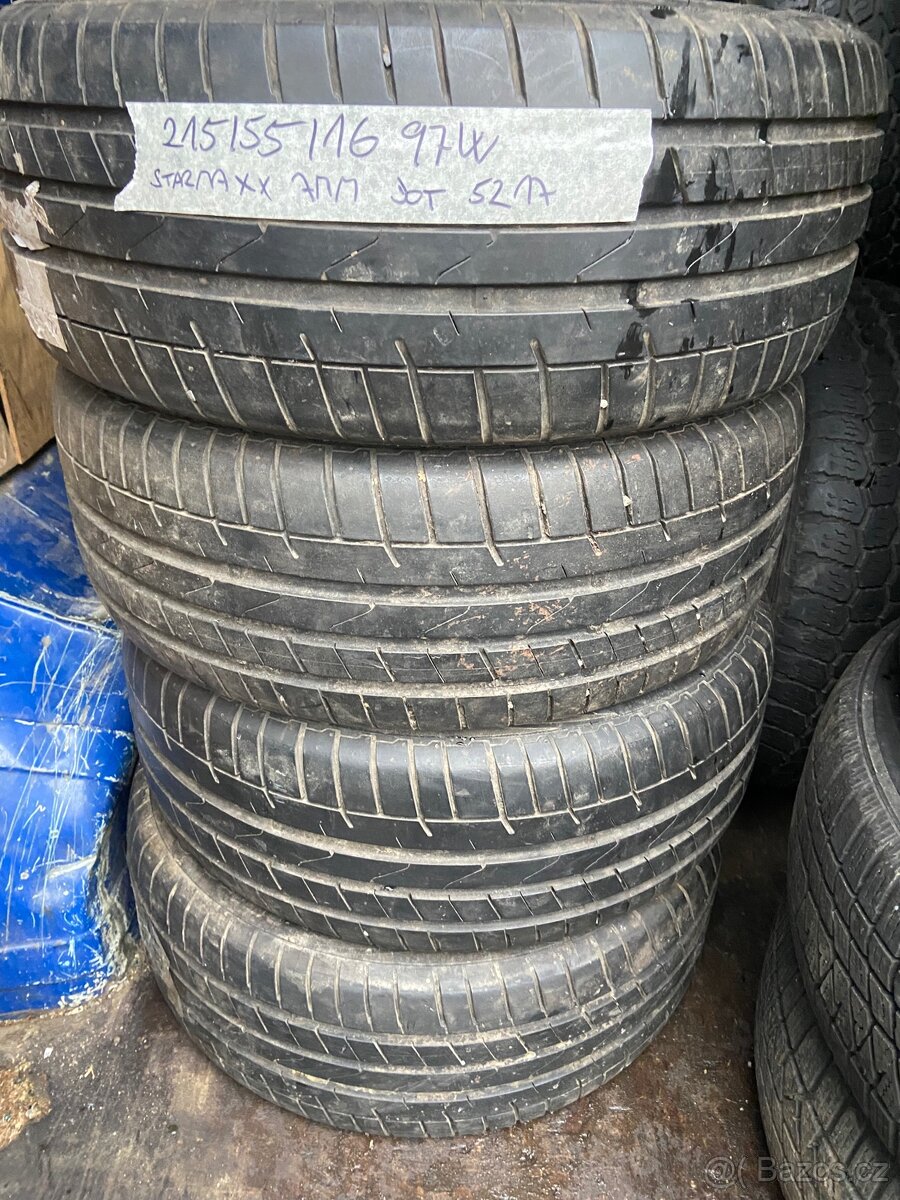 215/55/16 97W
STARMAXX 7MM DOT 5217
Bazos.cz